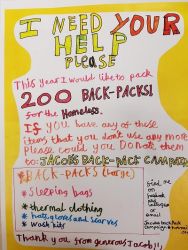 I NEED YOUR
HELP
PLEASE
This year I would like to pack
200 BACK-PACKS!
for the Homeless.
If you have any of these
items that you don't use any more
Please could you Donate them
to: JACOB'S BACK-PACK CAMPAIGN
*BACK-PACKS (Large)
*Sleeping bags
*thermal clothing
*hats, gloves and scarves
*wash kits
Thank you from generous Jacob!!
find me
on
facebook
or
email